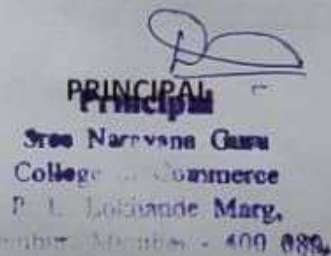 PRINCIPAL
Principal
Sree Narayana Guru
College Commerce
P. L. Lokhande Marg,
Mumbai - 400 089.